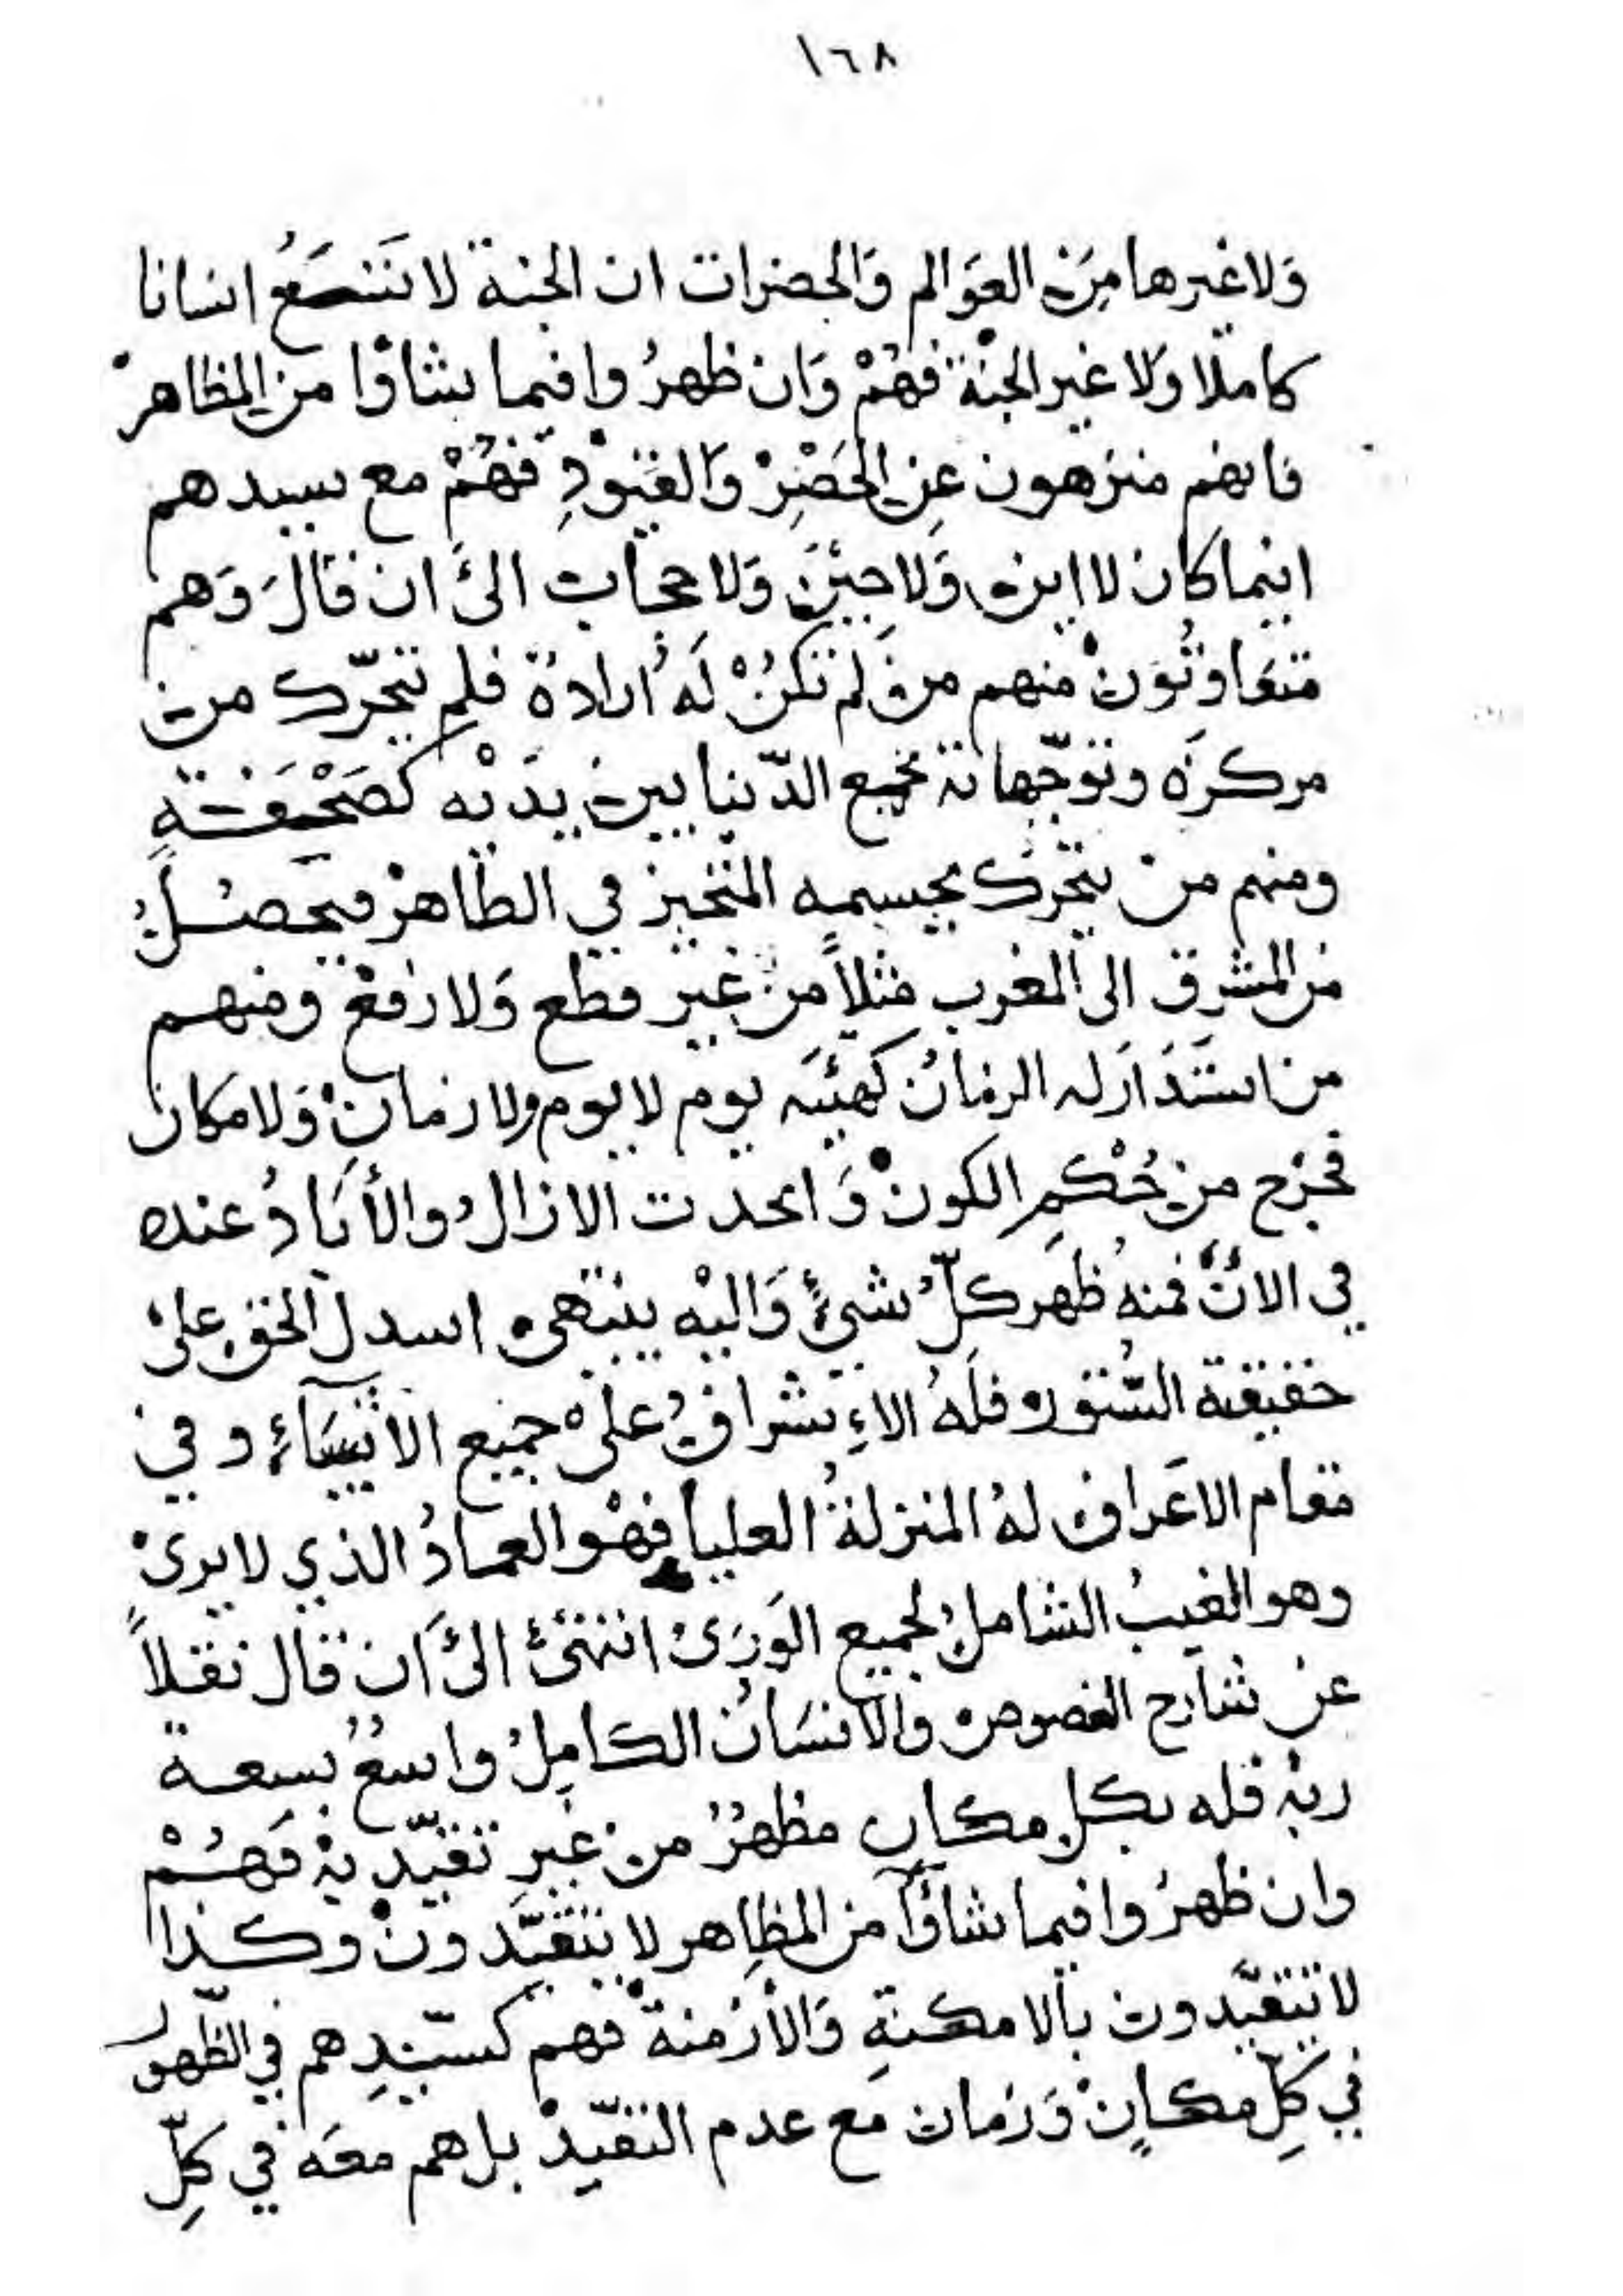 ١٦٨
وَلا غيرها مِنَ العَوَالم وَالحضرات ان الجنة لا تَتَسَعُ انسانا
كاملا وَلا غير الجنة فهُمْ وَان ظهرُوا فيما شاؤا مِنَ المظاهرْ
فانهم منزهون عنِ الحَصْرِ وَالقيُوْدِ فهُمْ مع سيدهم
اينما كان لا اين وَلا حِيْنَ وَلا حجاب الىَ ان قالَ وَهم
متفاوتُونْ منهم من لم تكنْ لَهُ ارادة فلم تتحرّك من
مركزه وتوجّهاته جميع الدّنيا بين يدَيْه كصَحْيفَتةٍ
ومنهم منْ يتحرّك بجسمه المتحيز في الظاهرْ فيحصُلُ
من المشرق الى المغرب مثلاً من غير قطع وَلا رفعْ ومنهم
من استَدَارَ له الزمانُ كهيئَه يوم لا يوم ولا زمانْ وَلا مكان
فخرج من حُكمِ الكونْ وَاتحدت الازالُ والأبَادُ عنده
في الانّ فمنهُ ظهر كلُّ شئٍ وَاليْه ينتهى اسدل الحق على
حقيقة السُّتور فلَهُ الاءِشرافُ على جميع الأشيَآءِ وفي
مقام الاعَراف لهُ المنزلةُ العليا فهْو العمادُ الذي لا يرى
وهو الغيبُ الشاملُ لجميع الوَرَىْ انتهىْ الىَ ان قال نقلاً
عن شارح الفصوص والانسَانُ الكامِلُ واسعُ بسعة
ربهْ فله بكل مكان مظهرُ من غيرِ تقيّد بهْ فهُمْ
وان ظهرُوا فيما شاؤا من المظاهر لا يتقيَّدونْ وكذا
لا يتقيَّدون بالامكنةِ وَالأزمنةْ فهم كسيّدِهم في الظّهور
في كلِّ مكانْ وَزمان مع عدم التقيّدْ بل هم معَه في كلِّ